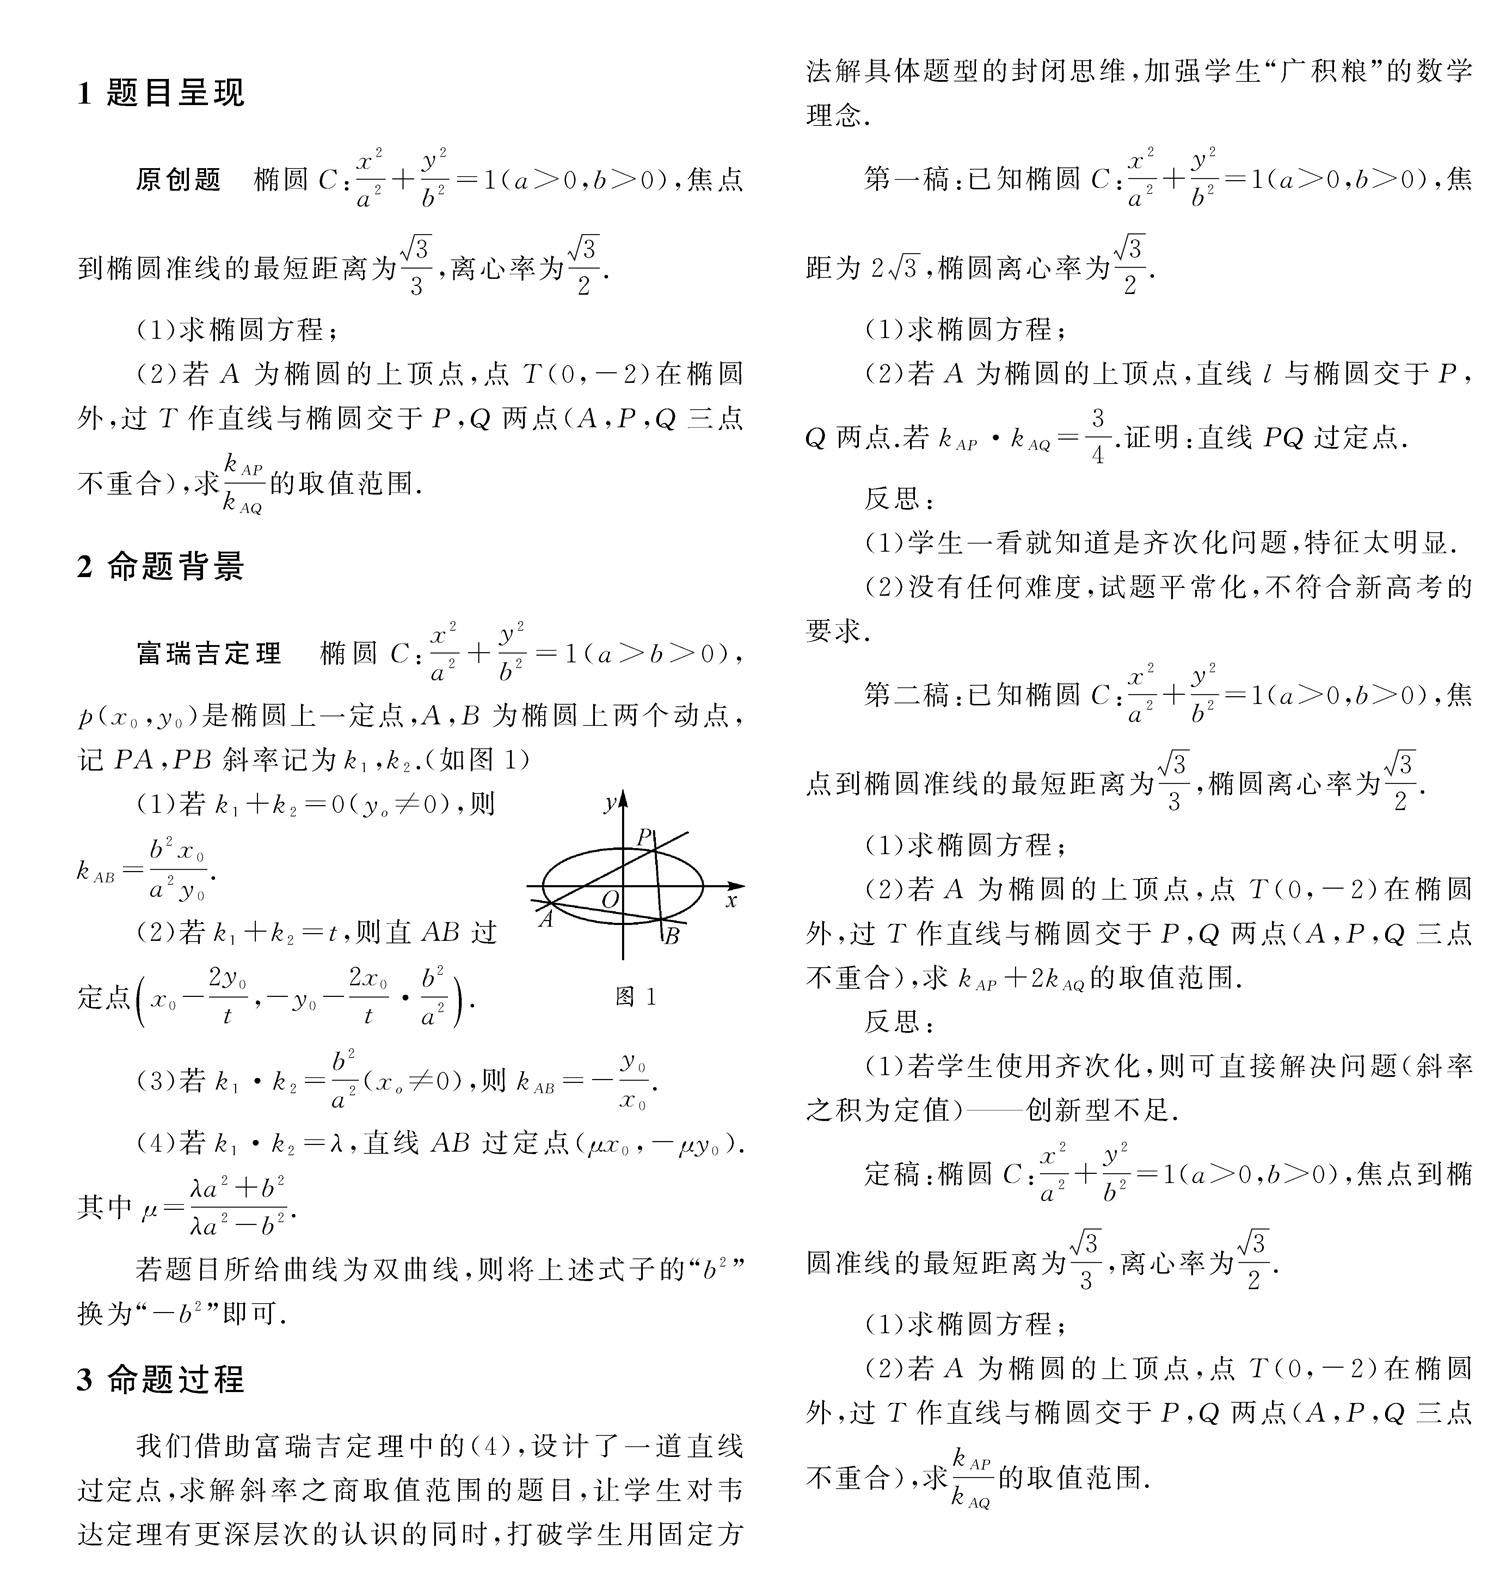 1 题目呈现
原创题 椭圆 C:x²/a²+y²/b²=1(a>0,b>0),焦点
到椭圆准线的最短距离为√3/3,离心率为√3/2.
(1)求椭圆方程;
(2)若 A 为椭圆的上顶点,点 T(0,-2)在椭圆
外,过 T 作直线与椭圆交于 P,Q 两点(A,P,Q 三点
不重合),求k_AP/k_AQ的取值范围.
2 命题背景
富瑞吉定理 椭圆 C:x²/a²+y²/b²=1(a>b>0),
p(x₀,y₀)是椭圆上一定点,A,B 为椭圆上两个动点,
记 PA,PB 斜率记为 k₁,k₂.(如图 1)
(1)若 k₁+k₂=0(yₒ≠0),则
k_AB=b²x₀/a²y₀.
(2)若 k₁+k₂=t,则直 AB 过
定点(x₀-2y₀/t,-y₀-2x₀/t·b²/a²).
y
P
O
x
A
B
图 1
(3)若 k₁·k₂=b²/a²(xₒ≠0),则 k_AB=-y₀/x₀.
(4)若 k₁·k₂=λ,直线 AB 过定点(μx₀,-μy₀).
其中 μ=(λa²+b²)/(λa²-b²).
若题目所给曲线为双曲线,则将上述式子的“b²”
换为“-b²”即可.
3 命题过程
我们借助富瑞吉定理中的(4),设计了一道直线
过定点,求解斜率之商取值范围的题目,让学生对韦
达定理有更深层次的认识的同时,打破学生用固定方
法解具体题型的封闭思维,加强学生“广积粮”的数学
理念.
第一稿:已知椭圆 C:x²/a²+y²/b²=1(a>0,b>0),焦
距为 2√3,椭圆离心率为√3/2.
(1)求椭圆方程;
(2)若 A 为椭圆的上顶点,直线 l 与椭圆交于 P,
Q 两点.若 k_AP·k_AQ=3/4.证明:直线 PQ 过定点.
反思:
(1)学生一看就知道是齐次化问题,特征太明显.
(2)没有任何难度,试题平常化,不符合新高考的
要求.
第二稿:已知椭圆 C:x²/a²+y²/b²=1(a>0,b>0),焦
点到椭圆准线的最短距离为√3/3,椭圆离心率为√3/2.
(1)求椭圆方程;
(2)若 A 为椭圆的上顶点,点 T(0,-2)在椭圆
外,过 T 作直线与椭圆交于 P,Q 两点(A,P,Q 三点
不重合),求 k_AP+2k_AQ的取值范围.
反思:
(1)若学生使用齐次化,则可直接解决问题(斜率
之积为定值)——创新型不足.
定稿:椭圆 C:x²/a²+y²/b²=1(a>0,b>0),焦点到椭
圆准线的最短距离为√3/3,离心率为√3/2.
(1)求椭圆方程;
(2)若 A 为椭圆的上顶点,点 T(0,-2)在椭圆
外,过 T 作直线与椭圆交于 P,Q 两点(A,P,Q 三点
不重合),求k_AP/k_AQ的取值范围.